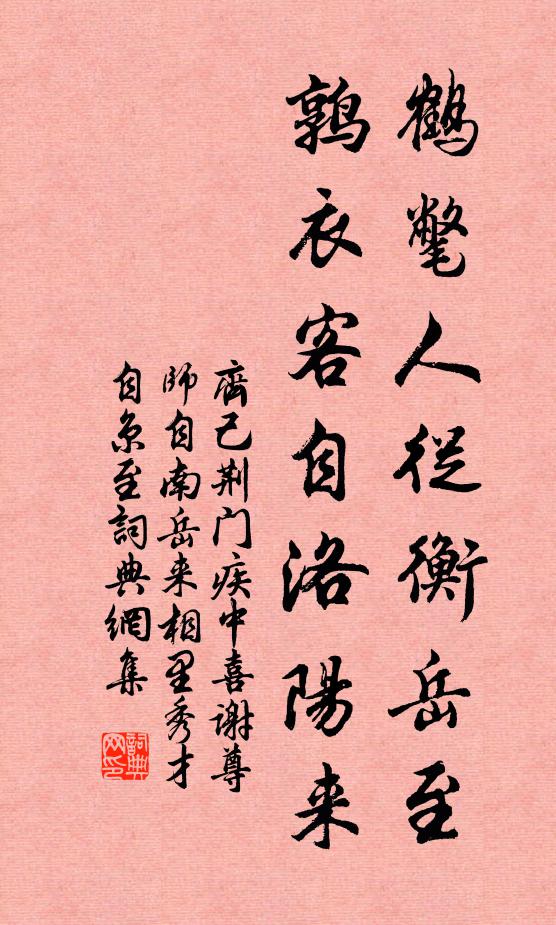 鶴氅人從衡岳至
鶉衣客自洛陽来
齊己荆门疾中喜謝尊
師自南岳来相里秀才
自京至詞典網集
詞典网印